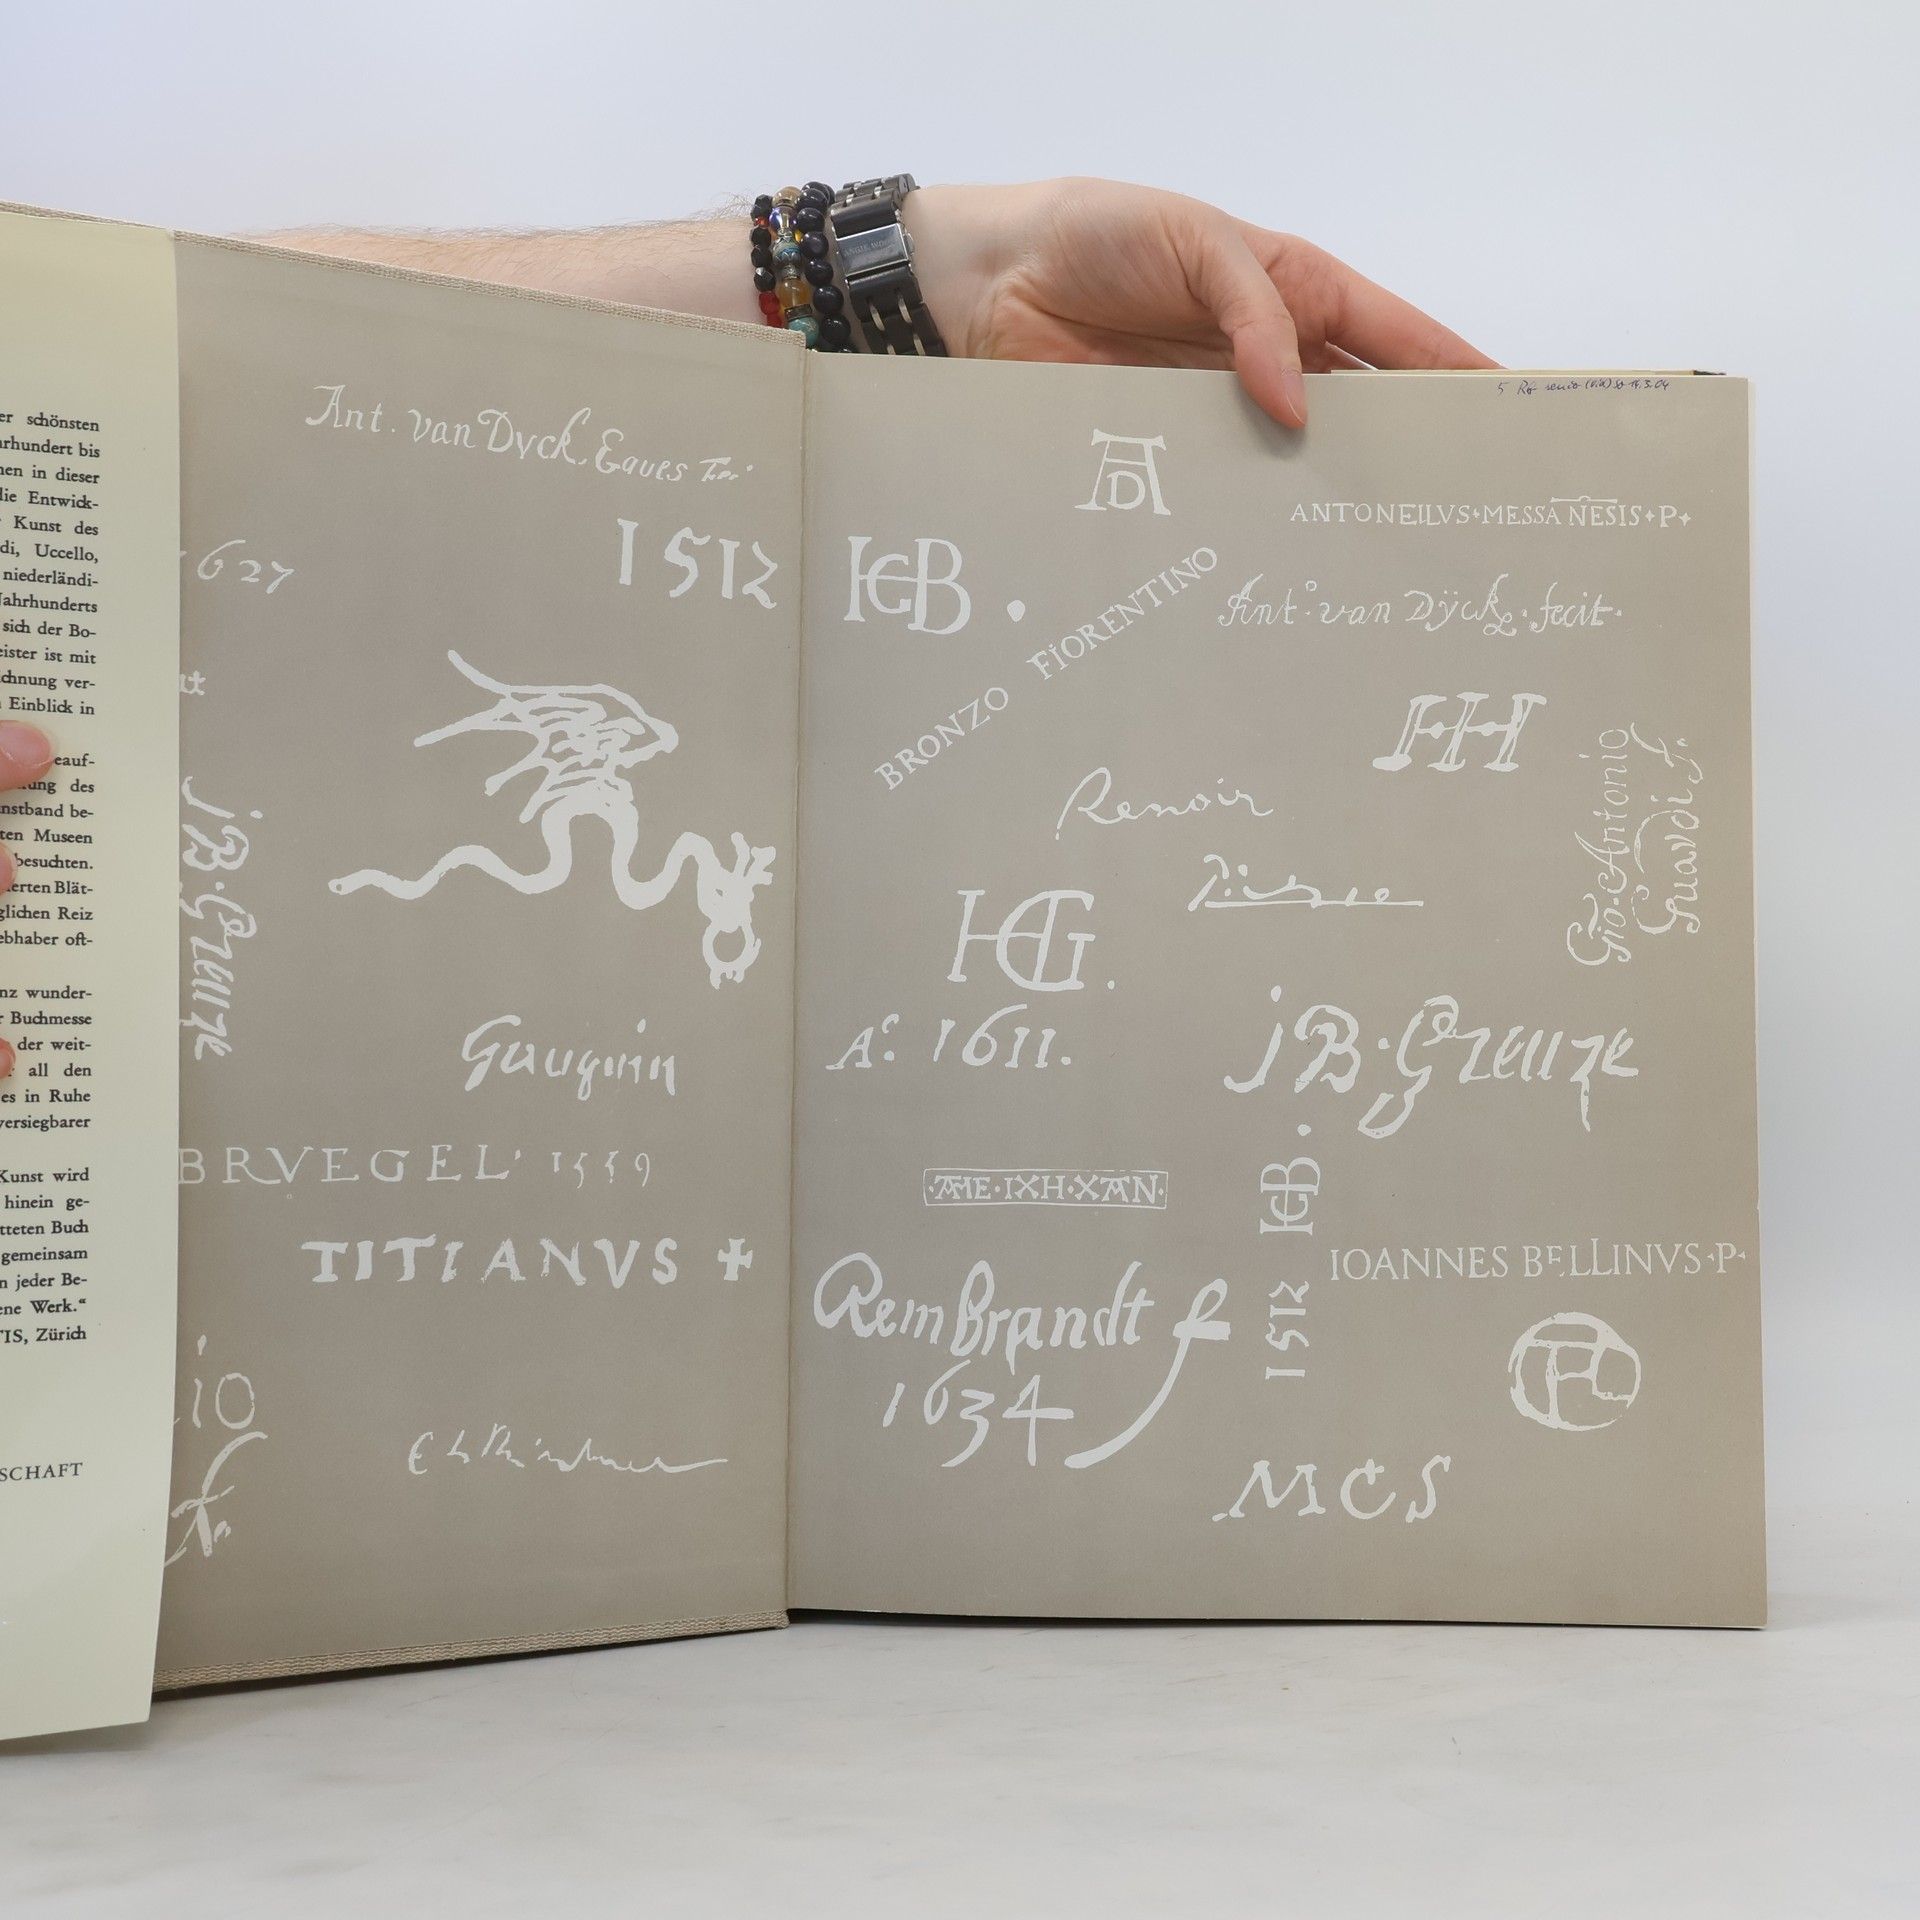 er schönsten
rhundert bis
en in dieser
ie Entwick-
Kunst des
di, Uccello,
niederländi-
ahrhunderts
sich der Bo-
eister ist mit
chnung ver-
Einblick in
eauf-
ung des
nstband be-
ten Museen
besuchten.
ierten Blät-
glichen Reiz
ebhaber oft-
nz wunder-
r Buchmesse
der weit-
all den
es in Ruhe
versiegbarer
Kunst wird
hinein ge-
tteten Buch
gemeinsam
n jeder Be-
ene Werk.“
TIS, Zürich
SCHAFT
Ant. van Dyck. Eques
1627
1512
JB. Greuze
Gauguin
BRVEGEL 1559
TITIANVS +
AD
ANTONELLVS MESSANESIS P
HGB.
BRONZO FIORENTINO
Ant.° van Dÿck. fecit.
HH
Renoir
Gio Antonio
Guardi F.
HG.
A.° 1611.
JB. Greuze
HGB.
1512
IOANNES BELLINVS P
RemBrandt f
1634
MCS